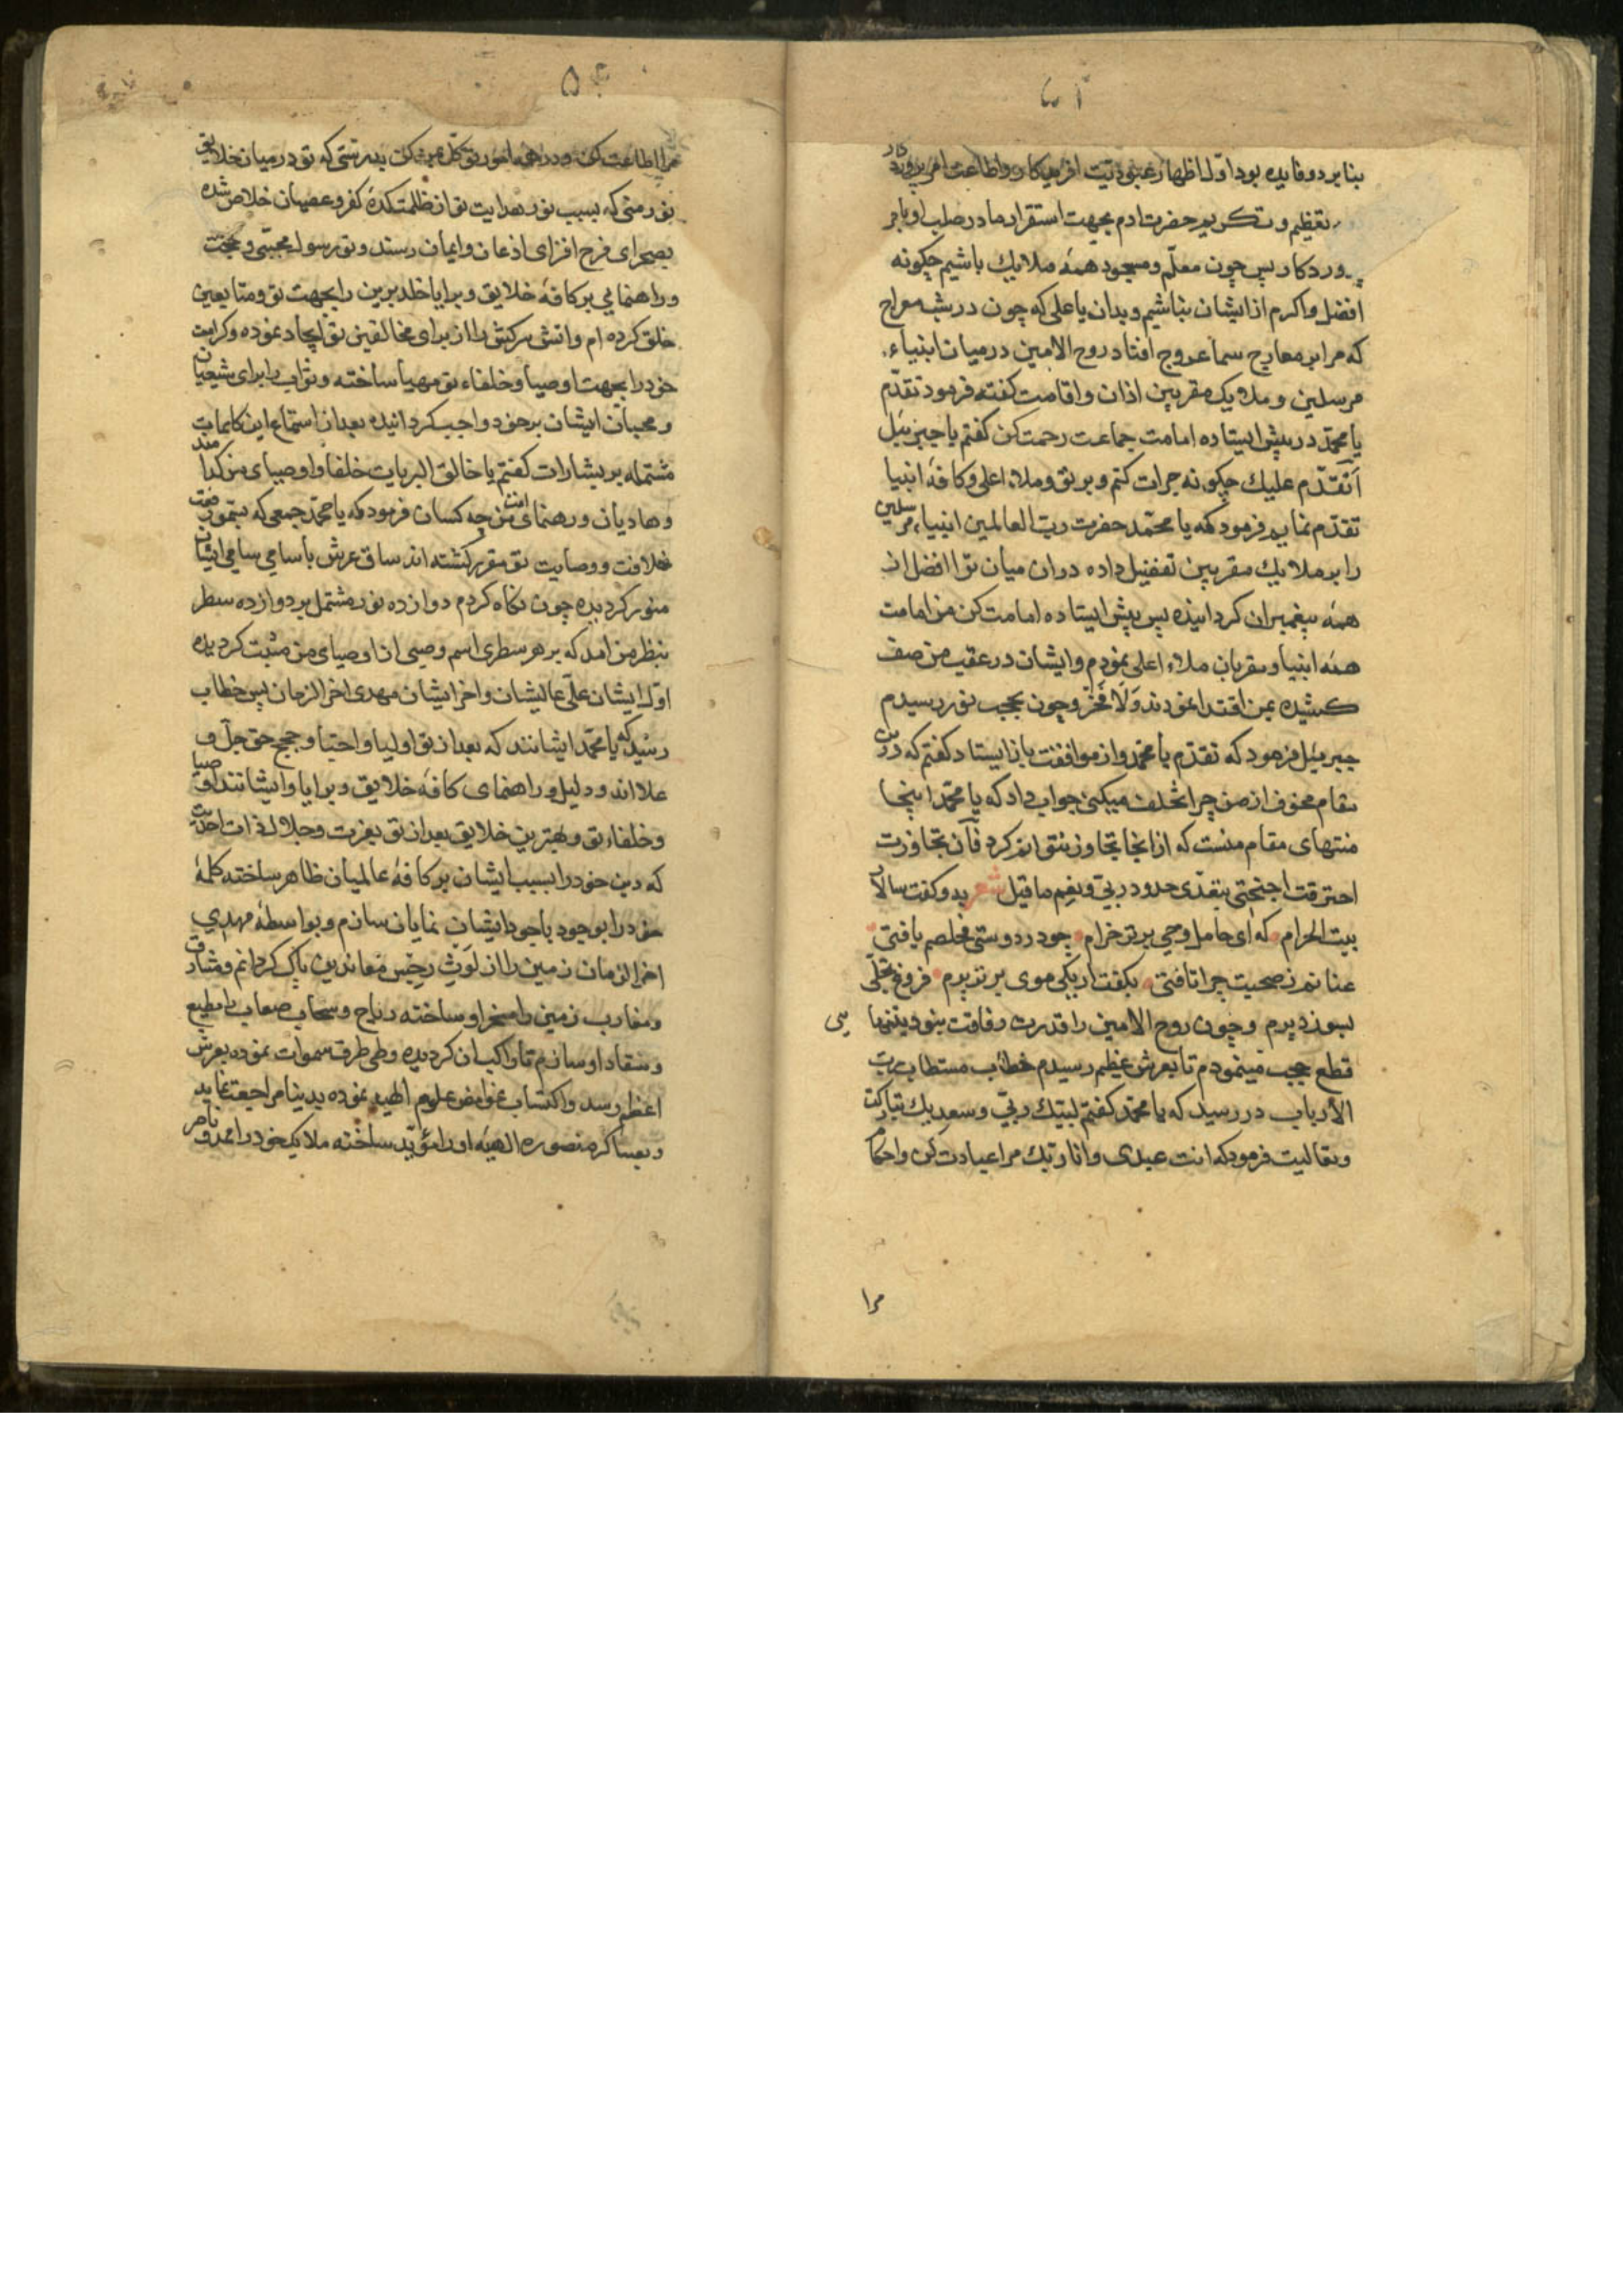 بنابر دو فایده بود اول اظهار عبودیت افریدکار و اطاعت امر پرورد کار
تعظیم و تکریم حضرت ادم بجهت استقرار ما در صلب او بامر
پرورد کار پس چون معلم و مسجود همه ملایک باشیم چکونه
افضل و اکرم از ایشان نباشیم و بدان یا علی که چون در شب معراج
که مرا بر معارج سما عروج افتاد روح الامین در میان انبیاء
مرسلین و ملایک مقربین اذان و اقامت کفته فرمود تقدم
یا محمد در پیش ایستاده امامت جماعت رحمت کن کفتم یا جبرئیل
اتقدم علیک چکونه جرات کنم و بر تو و ملاء اعلی و کافه انبیا
تقدم نمایم فرمود که یا محمد حضرت رب العالمین انبیاء مرسلین
را بر ملایک مقربین تفضیل داده و از ان میان ترا افضل از
همه پیغمبران کردانیده پس پیش ایستاده امامت کن من امامت
همه انبیا و مقربان ملاء اعلی نمودم و ایشان در عقب من صف
کشیده بمن اقتدا نمودند وَلَا فَخْرَ و چون بحجب نور رسیدم
جبرئیل فرمود که تقدم یا محمد و از موافقت باز ایستاد کفتم که در این
مقام مخوف از من چرا تخلف میکنی جواب داد که یا محمد اینجا
منتهای مقام منست که از اینجا تجاوز نتوانم کرد فان تجاوزت
احترقت اجنحتی بتعدی حدود ربی و نعم ما قیل شعر بدو کفت سالار
بیت الحرام که ای حامل وحی برتر خرام چو در دوستی مخلصم یافتی
عنانم ز صحبت چرا تافتی بکفت ار یکی موی برتر پرم فروغ تجلی
بسوزد پرم و چون روح الامین را قدرت رفاقت بنود بتنها یی
قطع حجب مینمودم تا بعرش عظیم رسیدم خطاب مستطاب رب
الارباب در رسید که یا محمد کفتم لبیک ربی و سعدیک تبارکت
و تعالیت فرمود که انت عبدی و انا ربک مرا عبادت کن و احکام
مرا
۵۲
مرا اطاعت کن و در همه امور توکل بمن کن بدرستی که تو در میان خلایق
نور منی که بسبب نور هدایت تو از ظلمتکده کفر و عصیان خلاص شده
بصحرای فرح افزای اذعان و ایمان رسند و تو رسول مجتبی و حجت
و راهنمایی بر کافه خلایق و برایا خلد برین را بجهت تو و متابعین
خلق کرده ام و اتش سرکش را از برای مخالفین تو ایجاد نموده و کرامت
خود را بجهت اوصیا و خلفاء تو مهیا ساخته و ثواب را برای شیعیان
و محبان ایشان بر خود واجب کردانیده بعد از استماع این کلمات
مشتمله بر بشارات کفتم یا خالق البریات خلفا و اوصیای من کدامند
و هادیان و رهنمای امت من چه کسان فرمود که یا محمد جمعی که بتعهد
خلافت و وصایت تو مقرر کشته اند ساق عرش باسامی سامی ایشان
منور کردیده چون نکاه کردم دوازده نور مشتمل بر دوازده سطر
بنظر من امد که بر هر سطری اسم وصیی از اوصیای من مثبت کردیده
اول ایشان علی عالیشان و اخر ایشان مهدی اخر الزمان پس خطاب
رسید که یا محمد ایشانند که بعد از تو اولیا و احبا و حجج حق جل و
علا اند و دلیل و راهنمای کافه خلایق و برایا و ایشانند اوصیا
و خلفاء تو و بهترین خلایق بعد از تو بعزت و جلال ذات احدیت
که دین خود را بسبب ایشان بر کافه عالمیان ظاهر ساخته کلمه
خود را بوجود باجود ایشان نمایان سازم و بواسطه مهدی
اخر الزمان زمین را از لوث رجس معاندین پاک کردانم و مشارق
و مغارب زمین را مسخر او ساخته ریاح و سحاب صعاب را مطیع
و منقاد او سازم تا راکب ان کردیده و طی طرق سموات نموده بعرش
اعظم رسد و اکتساب غوامض علوم الهیه نموده بدینا مراجعت نماید
و بعساکر منصوره الهیه او را مؤید ساخته ملایک خود را ممد و ناصر